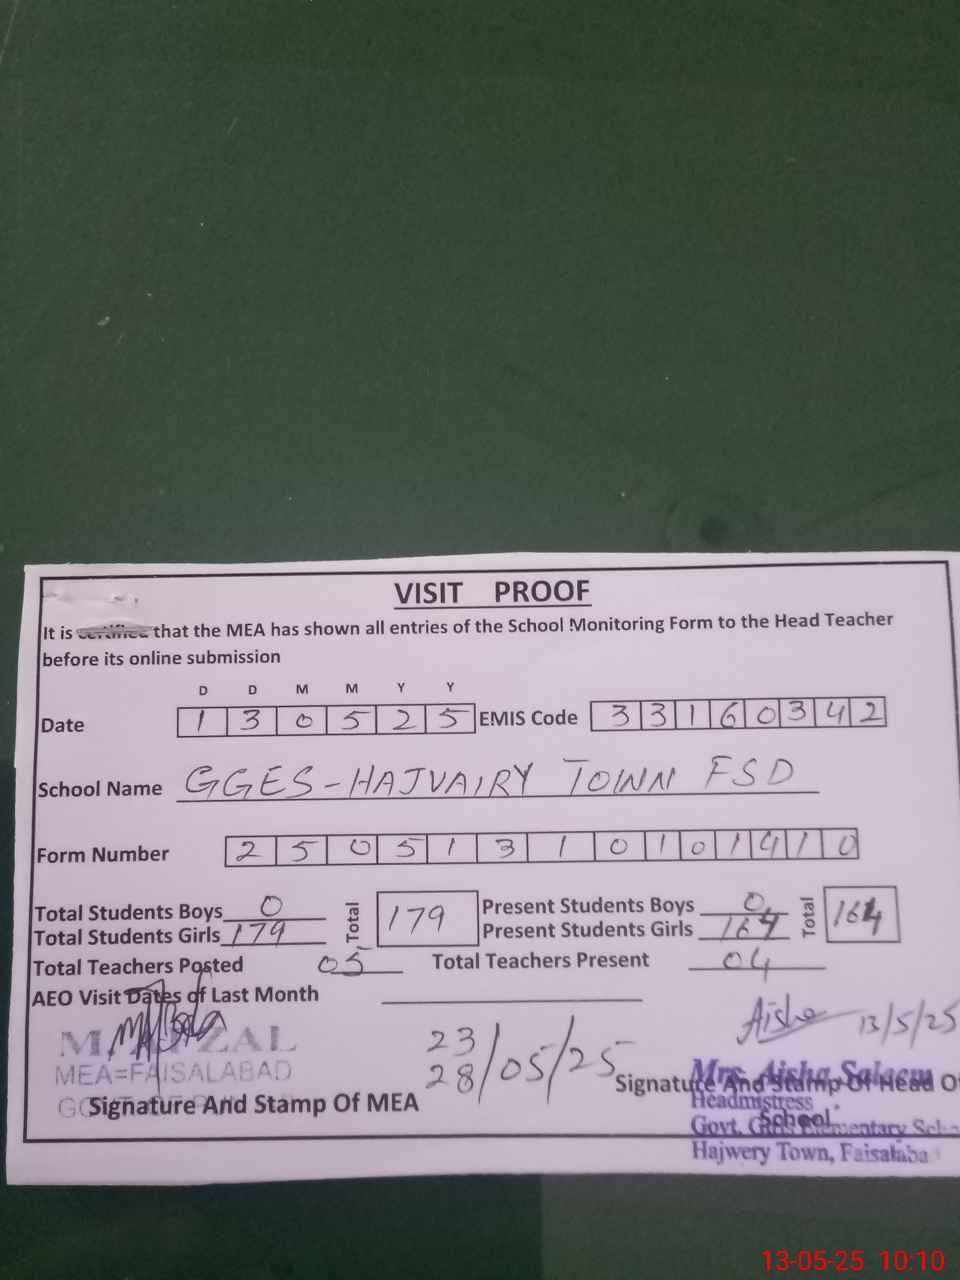 VISIT PROOF
It is certified that the MEA has shown all entries of the School Monitoring Form to the Head Teacher
before its online submission
D D M M Y Y
Date 1 3 0 5 2 5 EMIS Code 3 3 1 6 0 3 4 2
School Name GGES-HAJVAIRY TOWN FSD
Form Number 2 5 0 5 1 3 1 0 1 0 1 4 1 0
Total Students Boys 0 Total 179 Present Students Boys 0 Total 164
Total Students Girls 179 Present Students Girls 164
Total Teachers Posted 05 Total Teachers Present 04
AEO Visit Dates of Last Month
23
28/05/25
Aisha 13/5/25
MEA=FAISALABAD
Signature And Stamp Of MEA
Signature And Stamp Of Head Of
School
Mrs. Aisha Saleem
Headmistress
Govt. Girls Elementary
Hajwery Town, Faisalaba
13-05-25 10:10